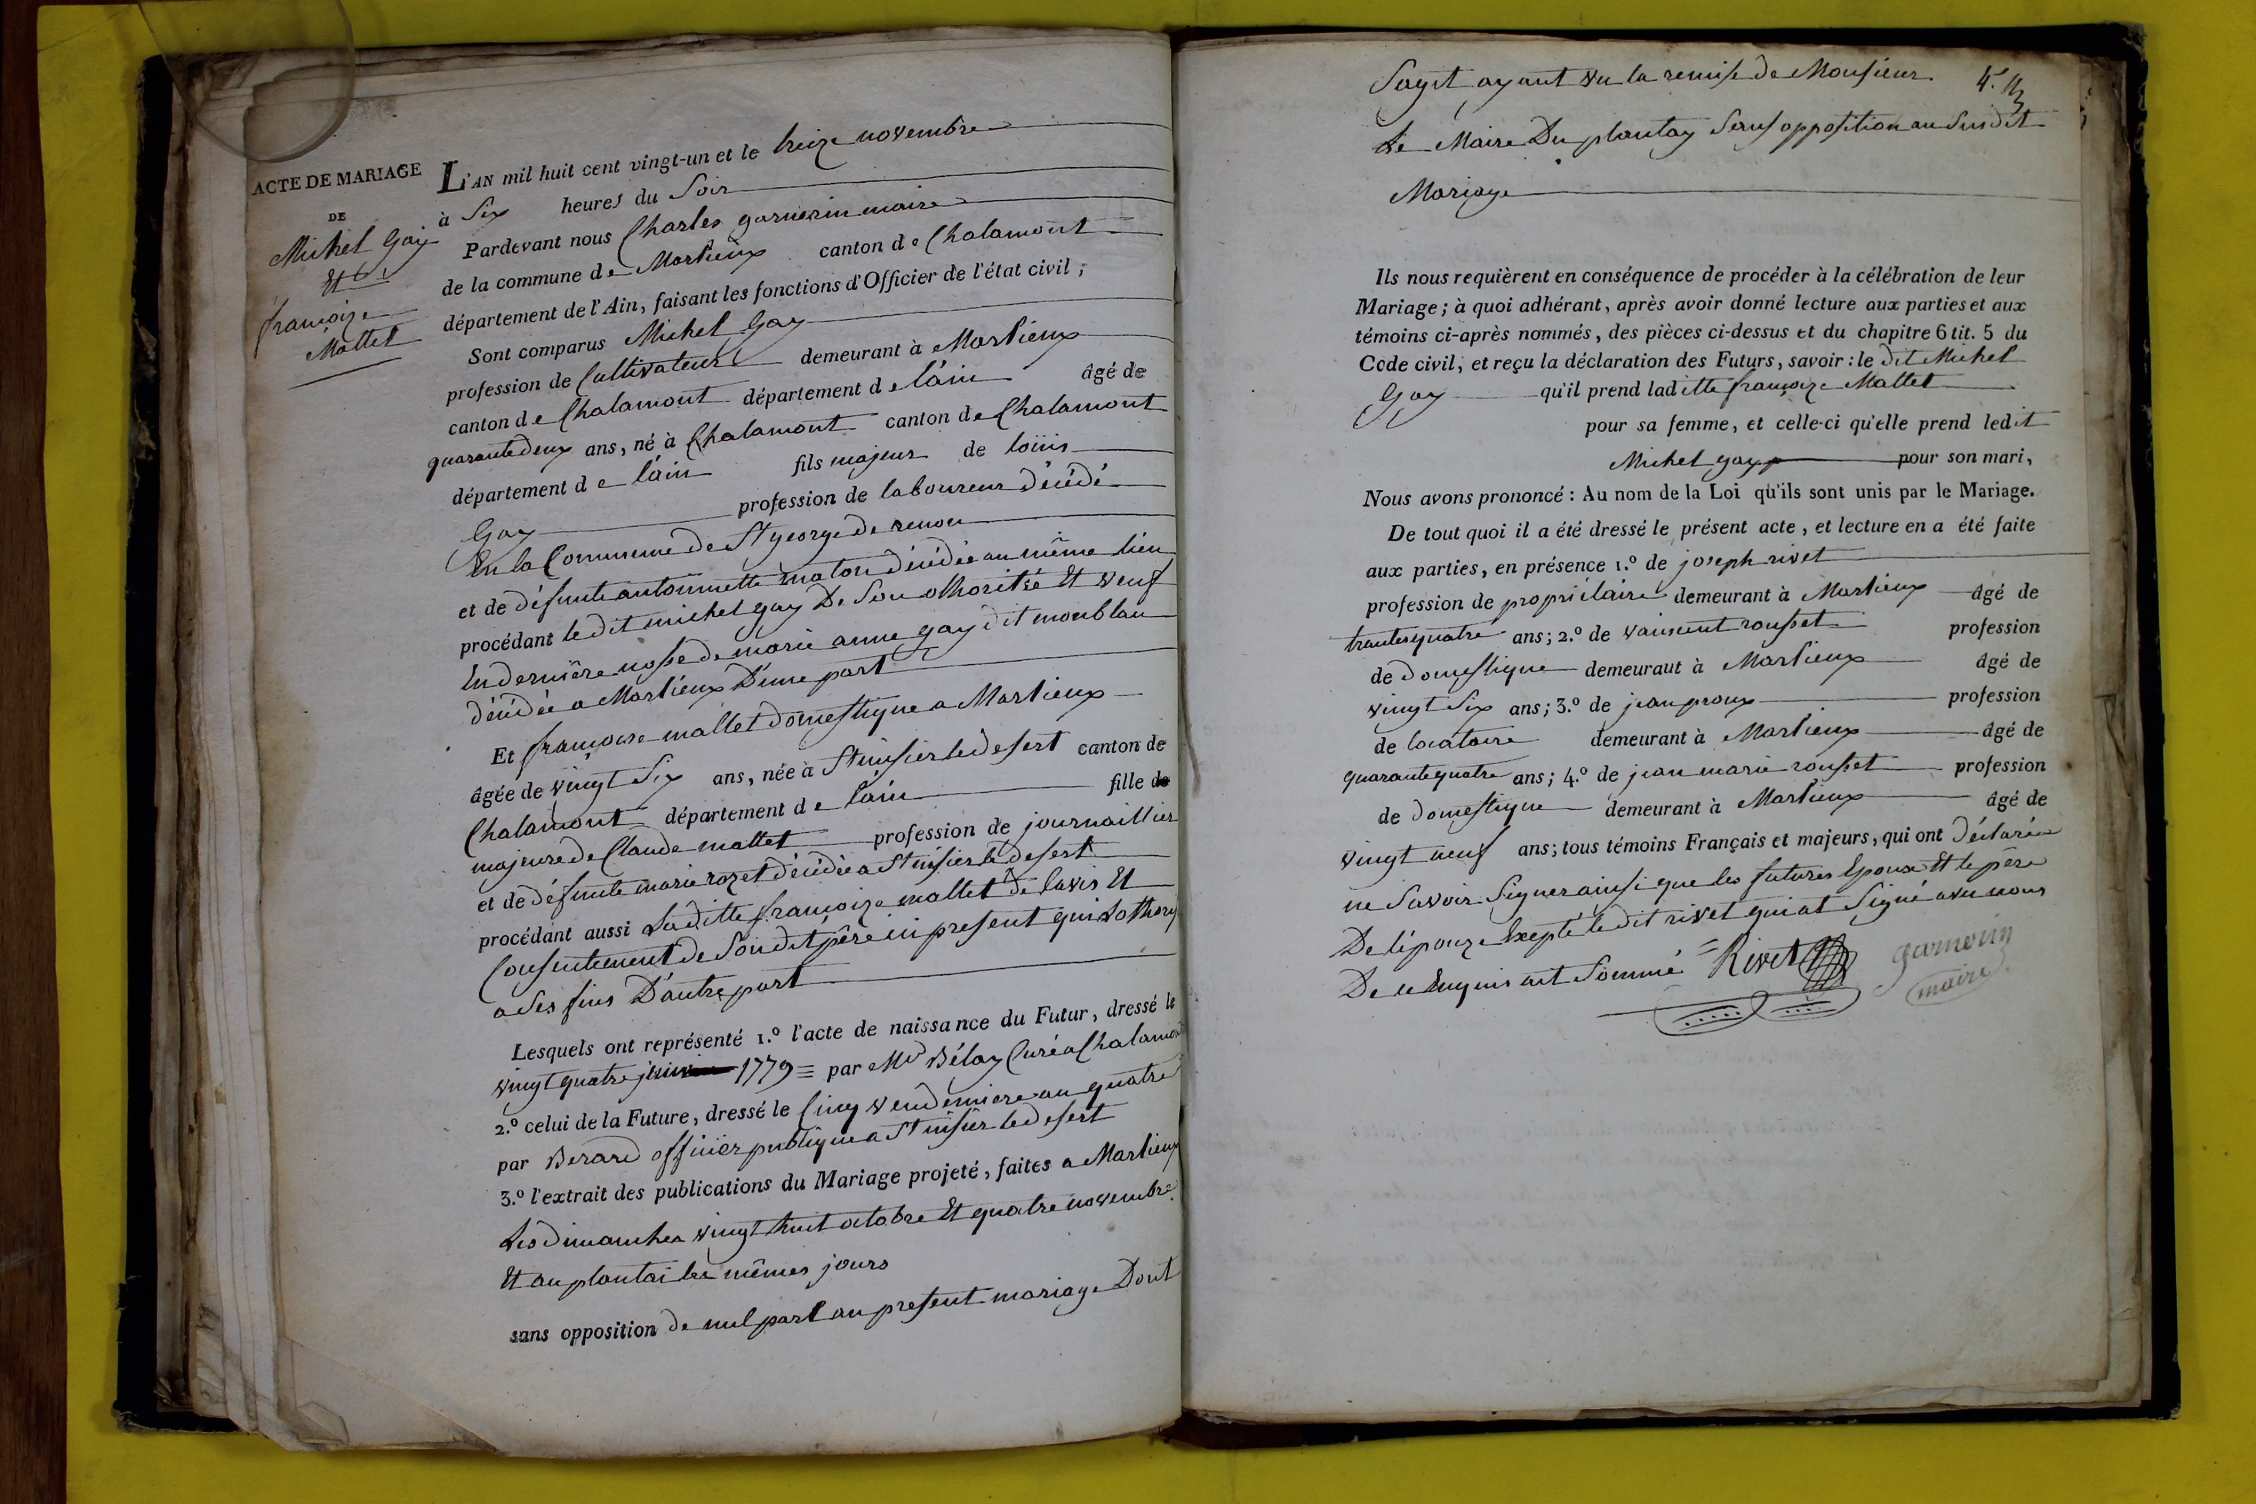 ACTE DE MARIAGE
DE
Michel Gay
Et
françoize
Mallet
L'AN mil huit cent vingt-un et le treize novembre
à Six heures du Soir
Pardevant nous Charles garnerin maire
de la commune de Marlieux canton de Chalamont
département de l'Ain, faisant les fonctions d'Officier de l'état civil;
Sont comparus Michel Gay
profession de Cultivateur demeurant à Marlieux
canton de Chalamont département de láin âgé de
quarante deux ans, né à Chalamont canton de Chalamont
département de láin fils majeur de loüis
Gay profession de laboureur décédé
En la Commune de St george de renon
et de défunte antoinnette maton décédée au même lieu
procédant le dit michel gay De Son othoritée Et veuf
En dernière nosse de marie anne gay dit monblan
décédée a Marlieux D'une part
Et françoise mallet domestique a Marlieux
âgée de vingt Six ans, née à St nisier le desert canton de
Chalamont département de láin fille
majeure de Claude mallet profession de journaillier
et de défunte marie rozet décédée a St nisier le desert
procédant aussi Laditte françoize mallet de lavis Et
Consentement de Son dit père ici present qui Lothorize
a Ses fins D'autre part
Lesquels ont représenté 1.º l'acte de naissance du Futur, dressé le
vingt quatre juin 1779 = par Mr Bélay Curé a Chalamont
2.º celui de la Future, dressé le Cinq vendemiere an quatre
par Berard officier publique a St nisier le desert
3.º l'extrait des publications du Mariage projeté, faites a Marlieux
Les dimanches vingt huit octobre Et quatre novembre
Et au plantai les mêmes jours
sans opposition de nul part au present mariage Dont
Sagit ayant vu la remise de Monsieur
Le Maire Du plantay Sans opposition au Susdit
Mariage
Ils nous requièrent en conséquence de procéder à la célébration de leur
Mariage; à quoi adhérant, après avoir donné lecture aux parties et aux
témoins ci-après nommés, des pièces ci-dessus et du chapitre 6 tit. 5 du
Code civil, et reçu la déclaration des Futurs, savoir : le dit Michel
Gay qu'il prend laditte françoize Mallet
pour sa femme, et celle-ci qu'elle prend ledit
Michel gay pour son mari,
Nous avons prononcé : Au nom de la Loi qu'ils sont unis par le Mariage.
De tout quoi il a été dressé le présent acte, et lecture en a été faite
aux parties, en présence 1.º de joseph rivet
profession de propriétaire demeurant à Marlieux âgé de
trante quatre ans; 2.º de vainsent rousset profession
de domestique demeuraut à Marlieux âgé de
vingt Six ans; 3.º de jean proux profession
de locataire demeurant à Marlieux âgé de
quarante quatre ans; 4.º de jean marie rousset profession
de domestique demeurant à Marlieux âgé de
vingt neuf ans; tous témoins Français et majeurs, qui ont déclarée
ne Savoir Signer ainsi que les futures Epoux Et le père
De lépouze Excepté le dit rivet qui at Signé avec nous
De ce Enquis art Sommé Rivet garnerin
maire